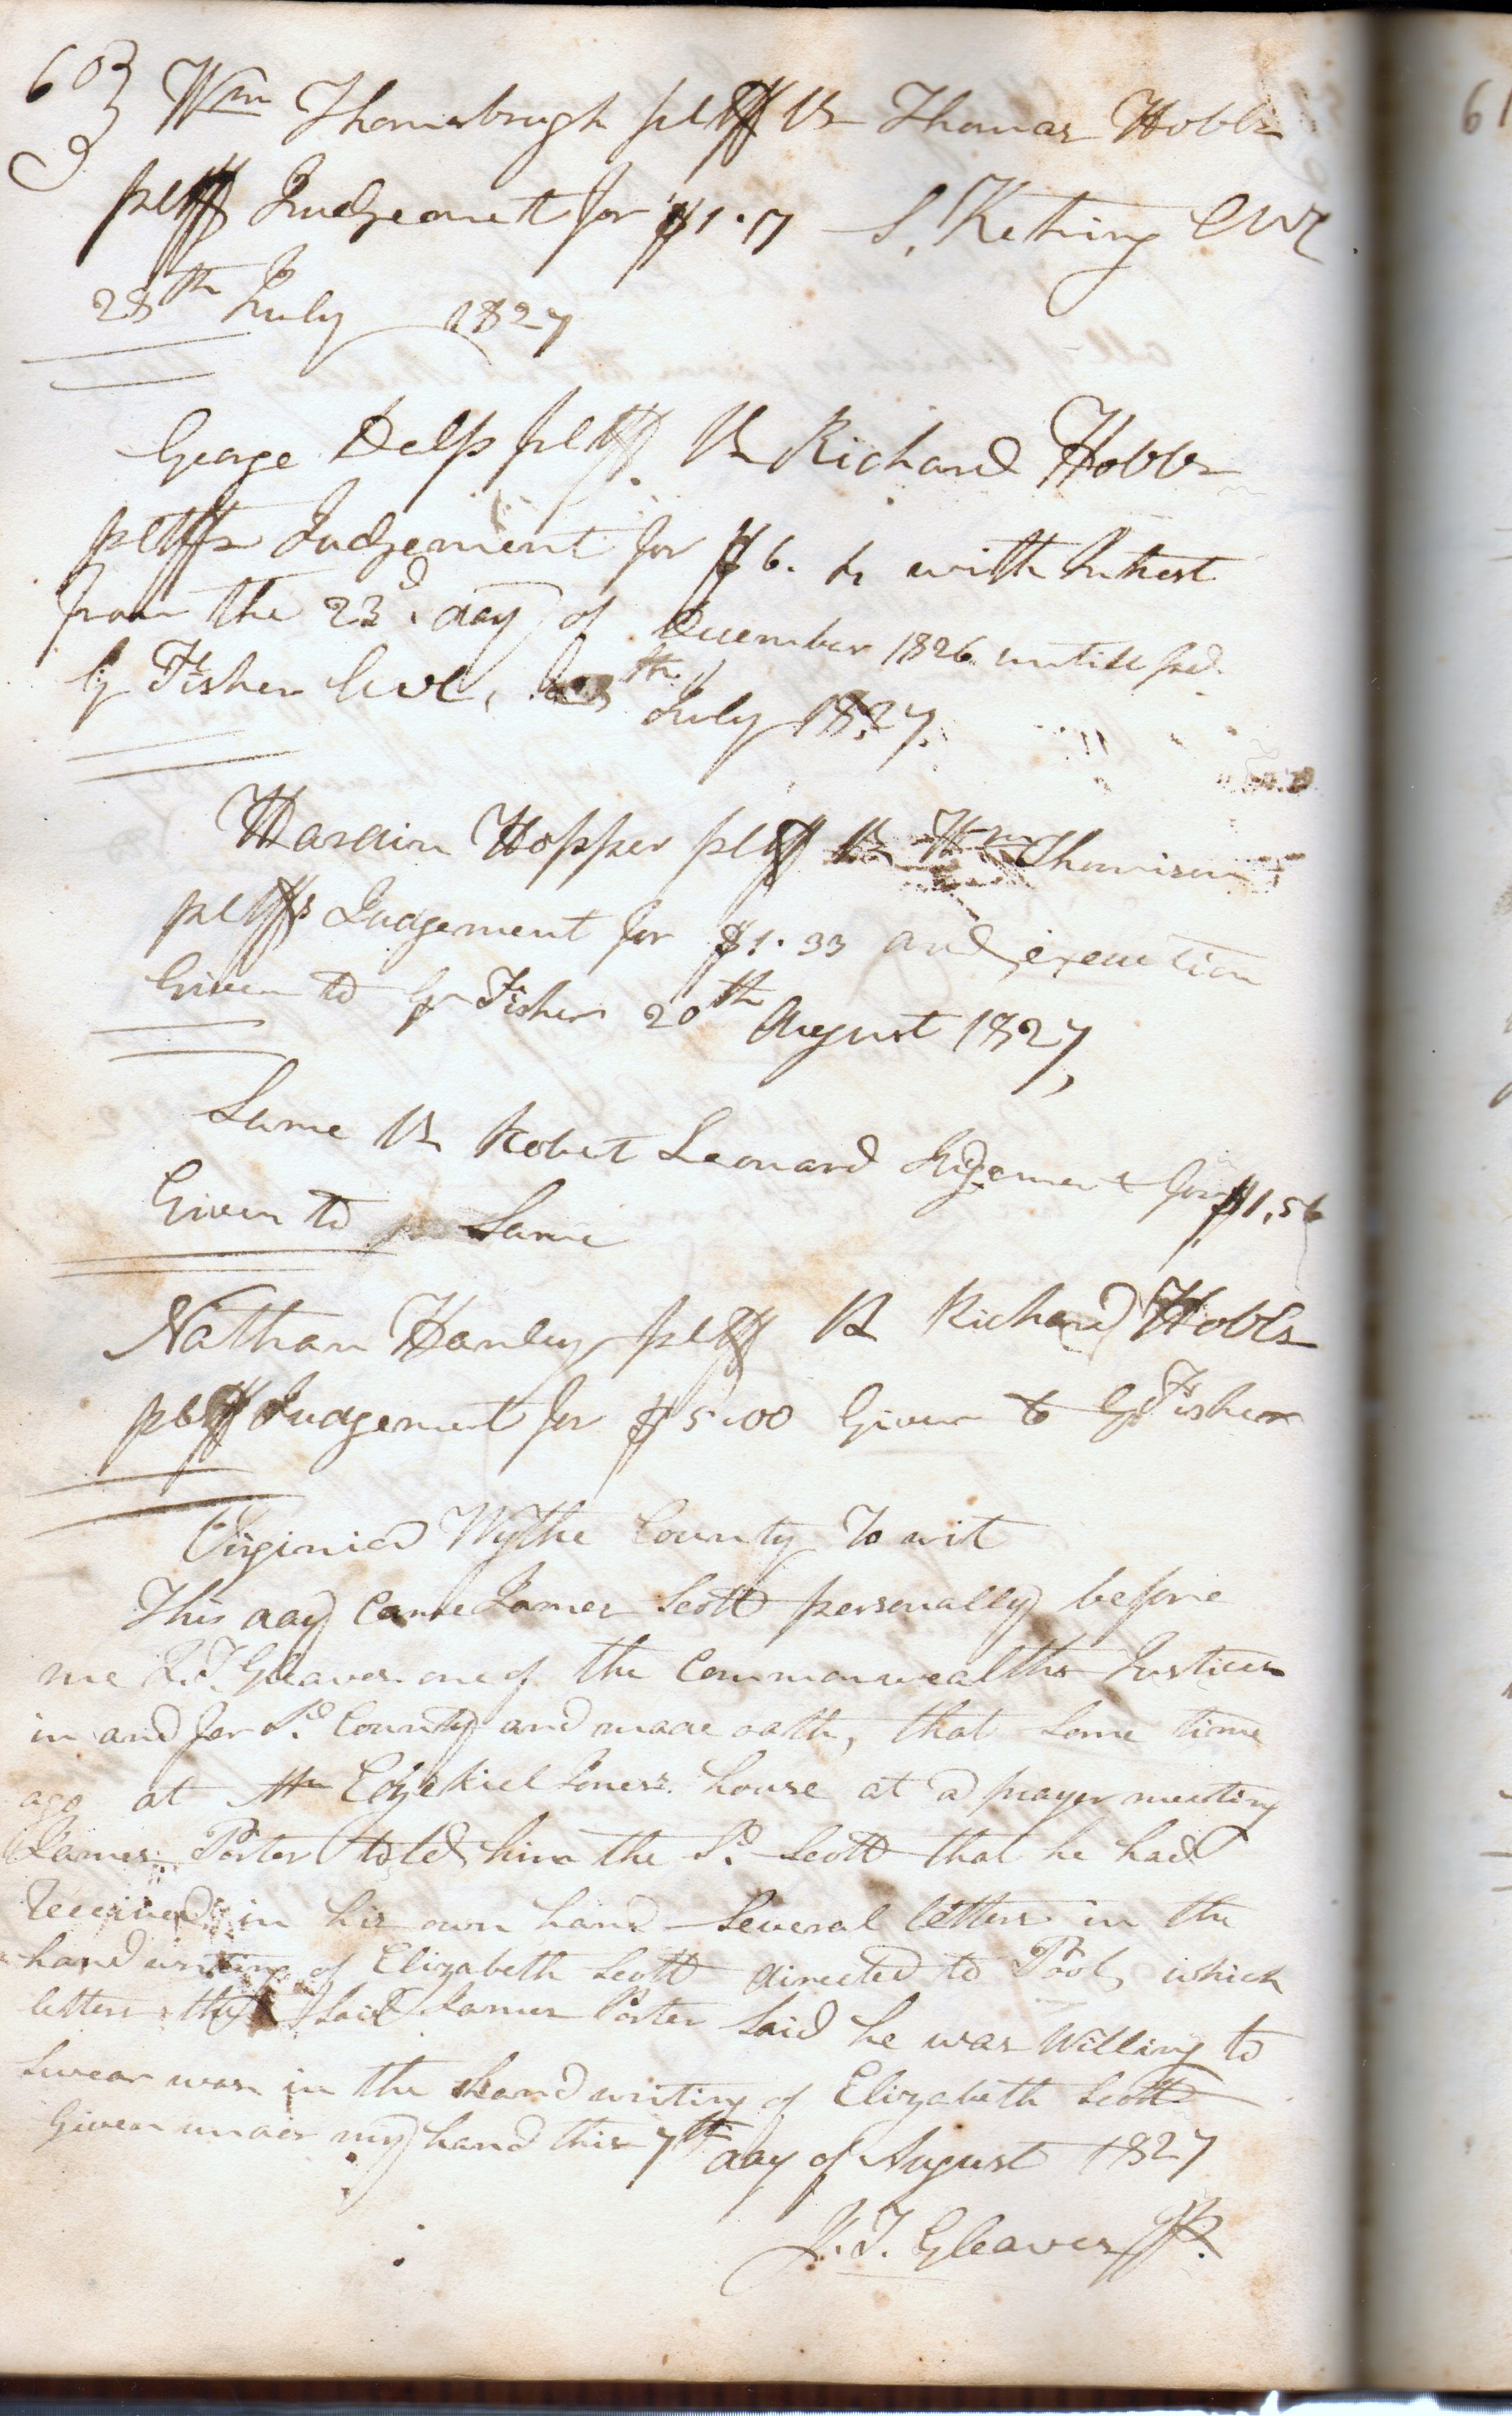 60 Wm Thornsbrugh pltff vs Thomas Hobbs
pltff Judgement for $1.17 S, Ketring CWC
28th July 1827
George Delp pltff. vs Richard Hobbs
pltffs Judgement for $6. with Intrest
from the 23d. day of December 1826 untill pd.
G Fisher CWC, th July 1827.
Hardin Hopper pltff vs Wm Thomison
pltffs Judgement for $1.33 and execution
Given to G Fisher 20th August 1827,
Same vs Robert Leonard Judgement for $1,56
Given to Same
Nathan Hanley pltff vs Richard Hobbs
pltff Judgement for $5.00 Given to G Fisher
Virginia Wythe County To wit
This day came James Scott personally before
me J.T. Gleaves one of the Commonwealths Justices
in and for Sd. County and made oath, that some time
ago at Mr Ezekiel Jones's house at a prayer meeting
James Porter told him the Sd. Scott that he had
Received in his own hand Several letters in the
hand writing of Elizabeth Scott directed to Pool, which
letters the Said James Porter Said he was Willing to
Swear was in the hand writing of Elizabeth Scott
Given under my hand this 7th day of August 1827
J.T. Gleaves JP.
6